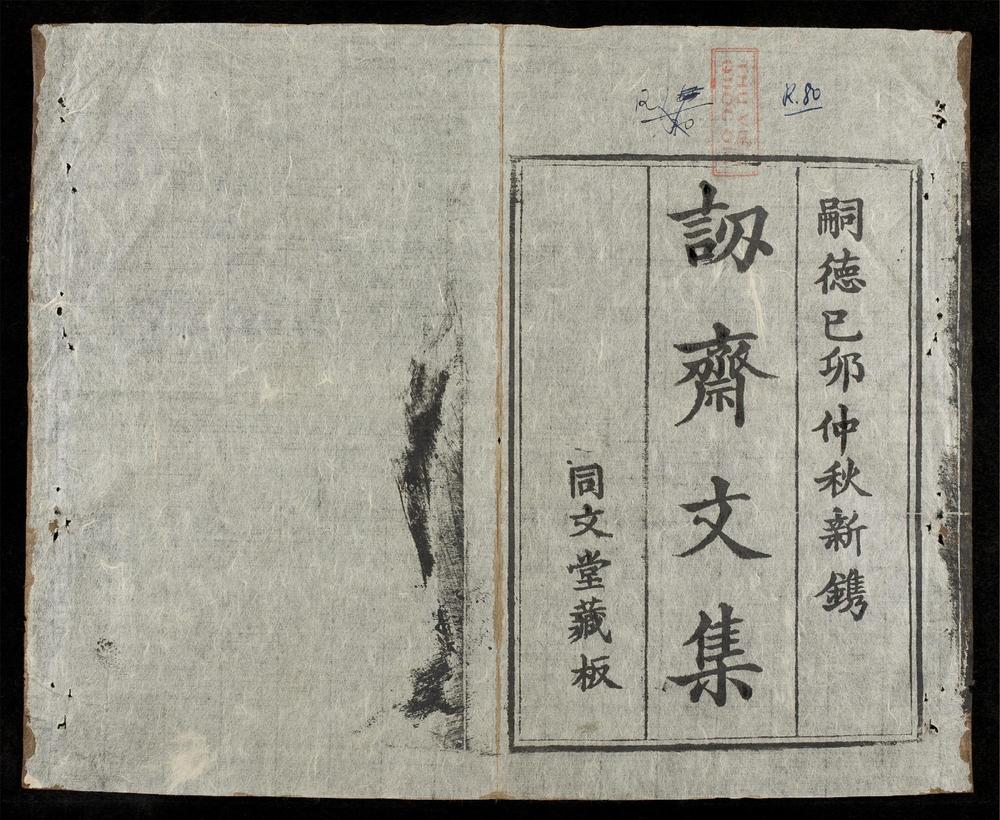 嗣德己卯仲秋新鐫
訒齋文集
同文堂藏板
R.80